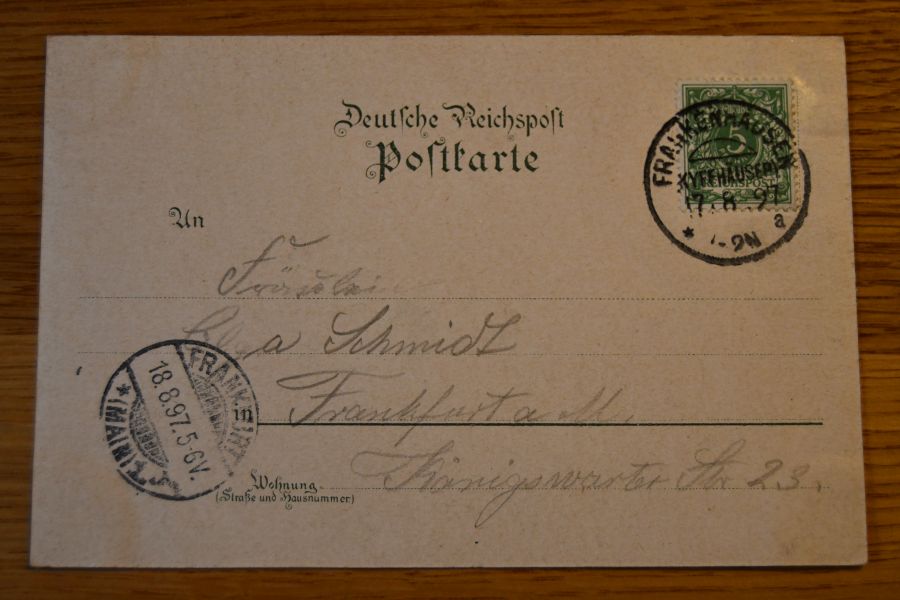 Deutsche Reichspost
Postkarte
FRANKENHAUSEN
5
KYFFHÄUSER
REICHSPOST
17.8.97
* -2N a
An
Fräulein
Schmidt
in Frankfurt a M.
Wohnung
(Straße und Hausnummer)
Königswarter Str 23.
FRANKFURT
18.8.97.5-6V.
* (MAIN)